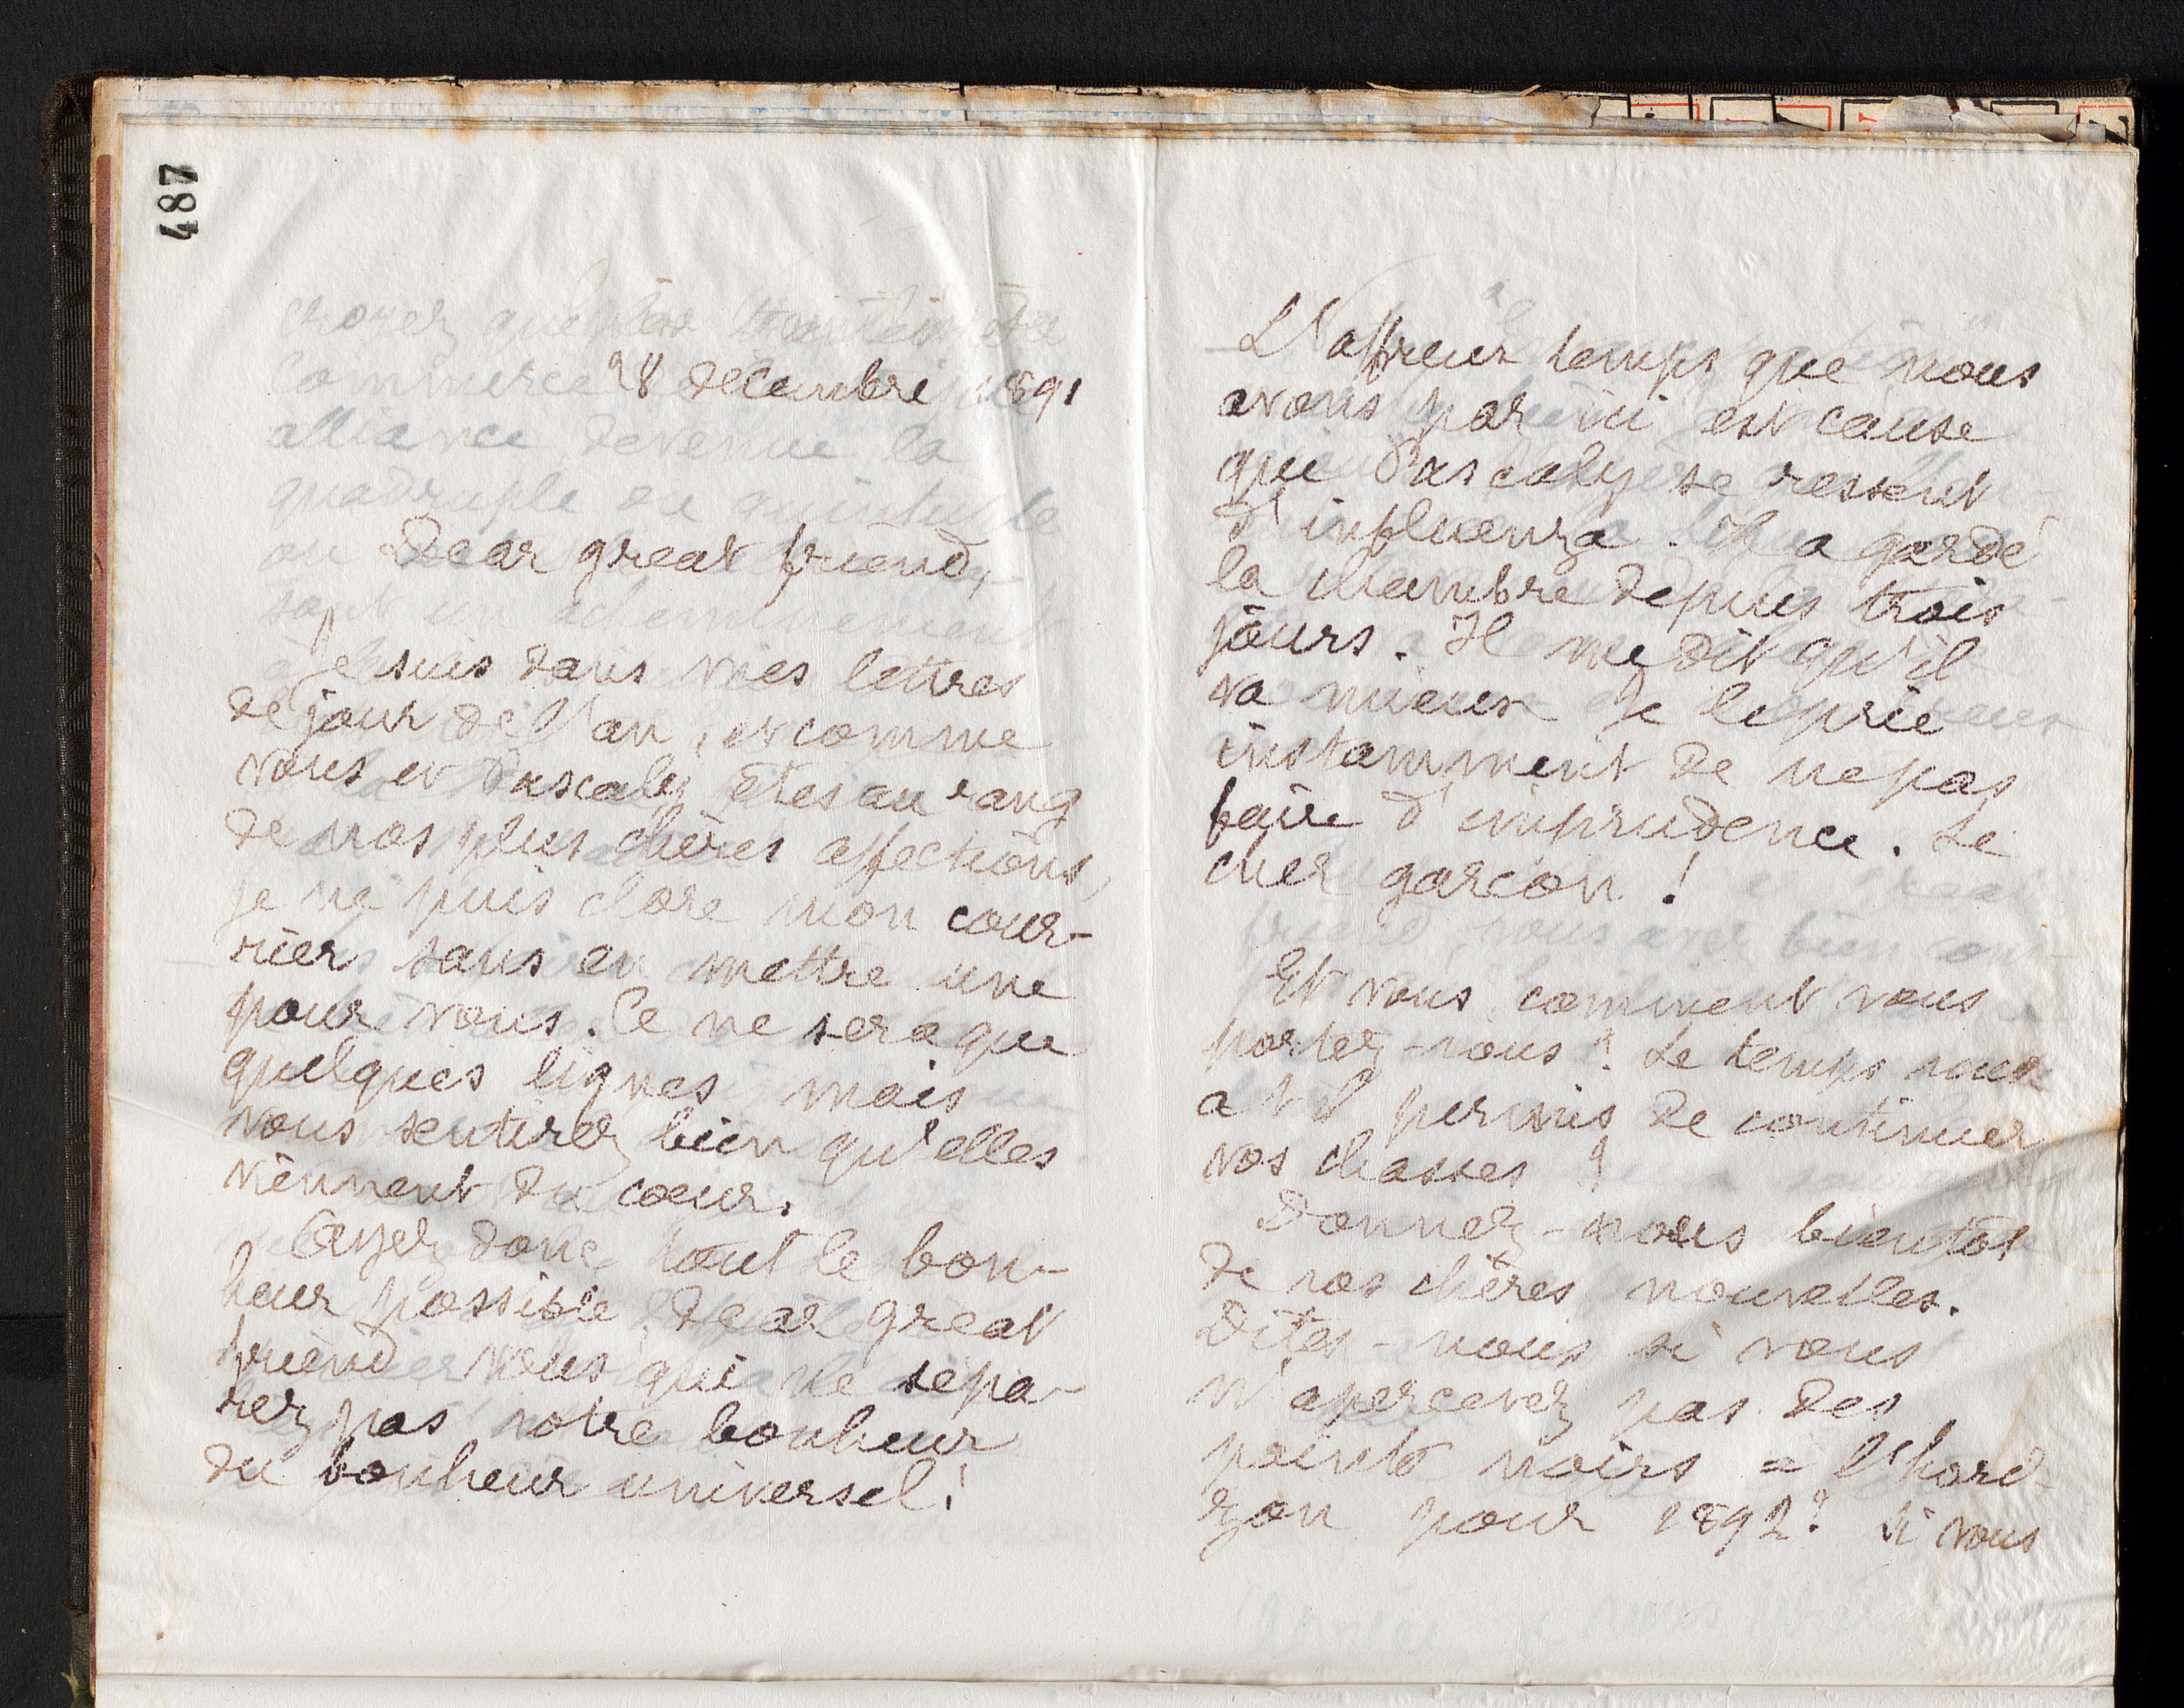 487
28 décembre 1891
Dear great friend,
Je suis dans mes lettres
de jour de l'an, et comme
vous et Pascaly êtes au rang
de nos plus chères affections,
je ne puis clore mon cour-
rier sans en mettre une
pour vous. Ce ne sera que
quelques lignes mais
vous sentirez bien qu'elles
viennent du cœur.
Ayez donc tout le bon-
heur possible, dear great
friend vous qui ne sépa-
rez pas votre bonheur
du bonheur universel!
L'affreux temps que nous
avons par ici est cause
que Pascaly se ressent
d'influenza. Il a gardé
la chambre depuis trois
jours. Il me dit qu'il
va mieux Je le prie
instamment de ne pas
faire d'imprudence. Le
cher garçon!
Et vous comment vous
portez-vous? Le temps vous
a t'il permis de continuer
vos chasses?
Donnez-nous bientôt
de vos chères nouvelles.
Dites-nous si vous
n'apercevez pas des
points noirs à l'hori-
zon pour 1892? Si vous